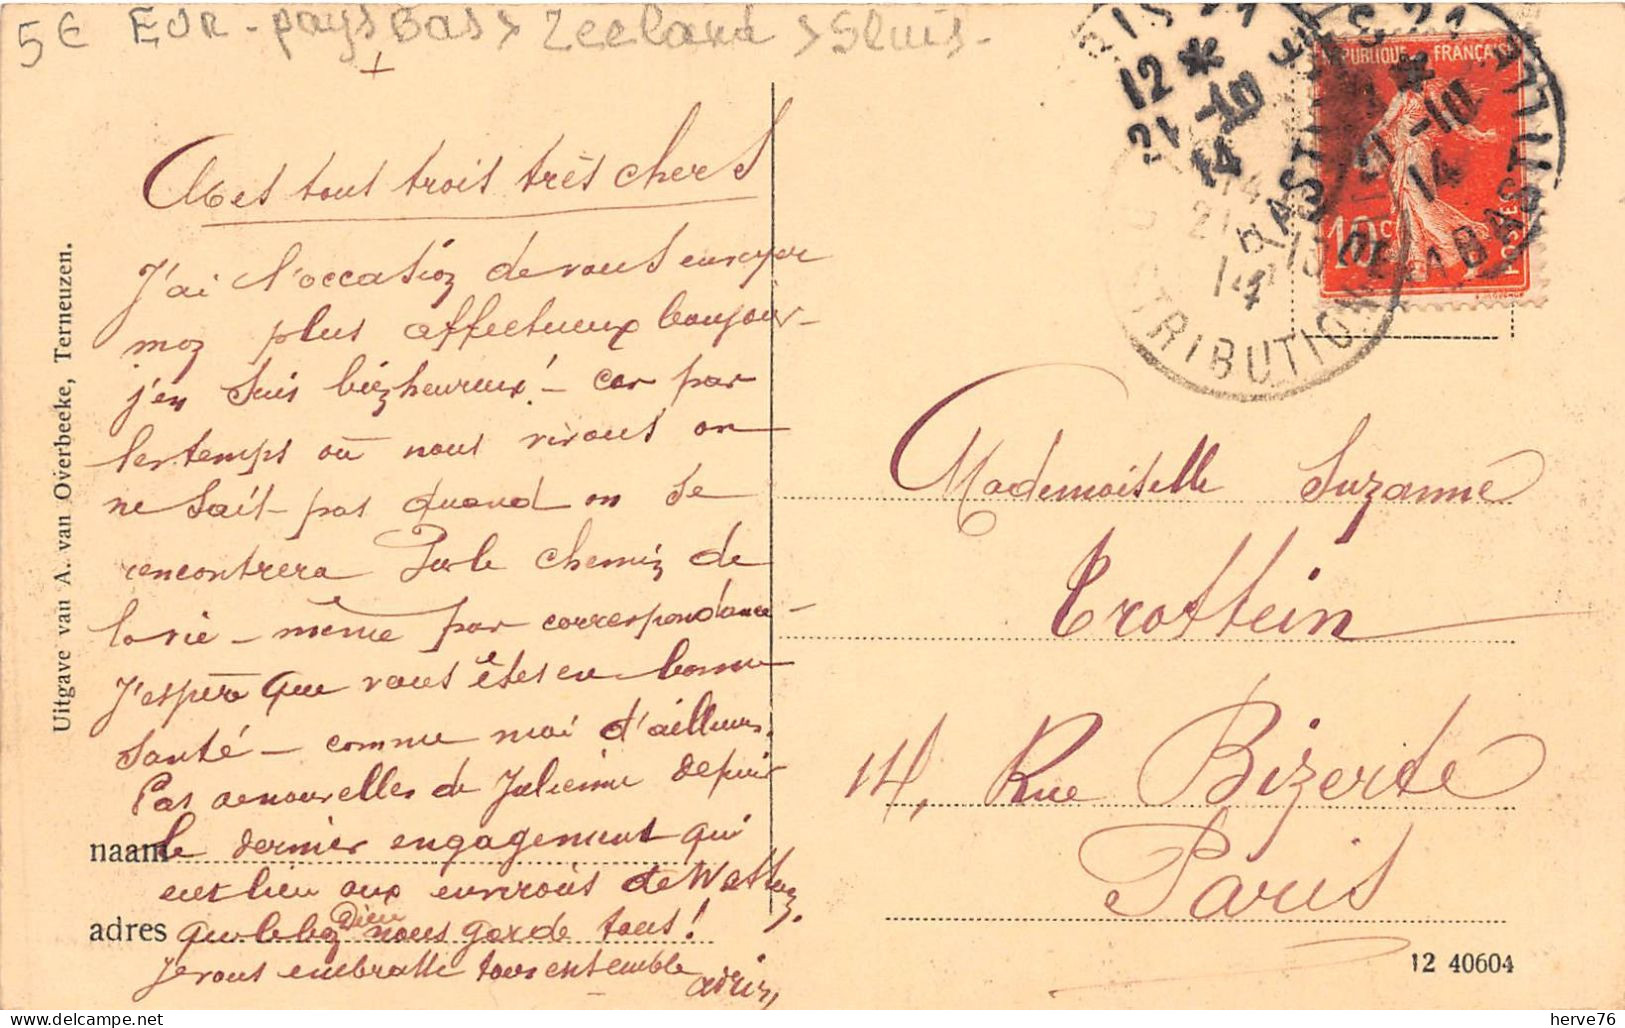 5€ EUR - pays Bas > Zeeland > Sluis -
Mes tous trois très chers
J'ai l'occasion de vous envoyer
mon plus affectueux bonjour -
j'en suis bien heureux! - car par
les temps où nous vivons on
ne sait pas quand on se
rencontrera sur le chemin de
la vie - même par correspondance -
J'espère que vous êtes en bonne
santé - comme moi d'ailleurs.
Pas de nouvelles de Julienne depuis
le dernier engagement qui
eut lieu aux environs de
que le bon Dieu nous garde tous!
Je vous embrasse tous ensemble
naam
adres
Uitgave van A. van Overbeeke, Terneuzen.
REPUBLIQUE FRANÇAISE
10c
POSTES
12 *
21 -10
14
BASTILLE
DISTRIBUTION
Mademoiselle Suzanne
Trottein
14, Rue Bizerte
Paris
12 40604
herve76